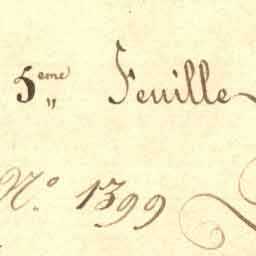 5eme Feuille
No. 1399